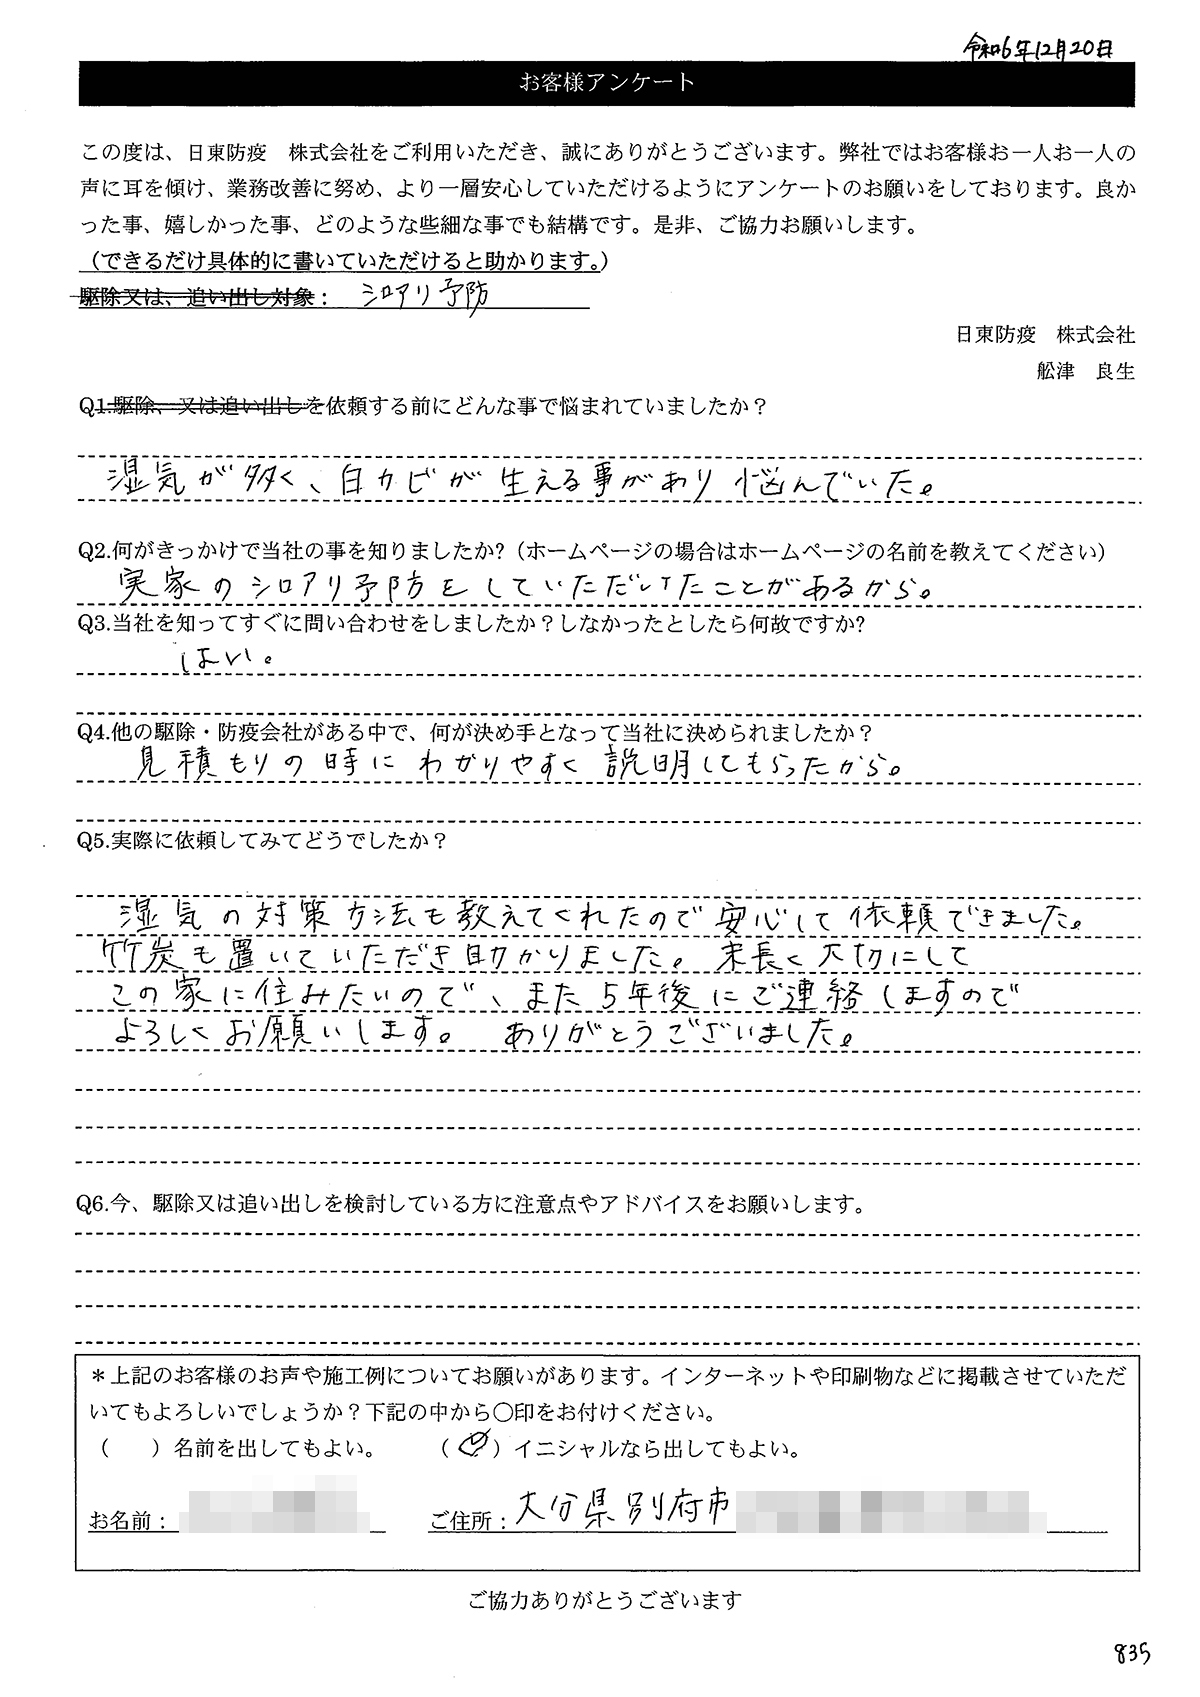 令和6年12月20日
お客様アンケート
この度は、日東防疫　株式会社をご利用いただき、誠にありがとうございます。弊社ではお客様お一人お一人の
声に耳を傾け、業務改善に努め、より一層安心していただけるようにアンケートのお願いをしております。良か
った事、嬉しかった事、どのような些細な事でも結構です。是非、ご協力お願いします。
（できるだけ具体的に書いていただけると助かります。）
駆除又は、追い出し対象： シロアリ予防
日東防疫　株式会社
舩津　良生
Q1.駆除、又は追い出しを依頼する前にどんな事で悩まれていましたか？
湿気が多く、白カビが生える事があり悩んでいた。
Q2.何がきっかけで当社の事を知りましたか?（ホームページの場合はホームページの名前を教えてください）
実家のシロアリ予防をしていただいてたことがあるから。
Q3.当社を知ってすぐに問い合わせをしましたか？しなかったとしたら何故ですか?
はい。
Q4.他の駆除・防疫会社がある中で、何が決め手となって当社に決められましたか？
見積もりの時にわかりやすく説明してもらったから。
Q5.実際に依頼してみてどうでしたか？
湿気の対策方法も教えてくれたので安心して依頼できました。
竹炭も置いていただき助かりました。末長く大切にして
この家に住みたいので、また5年後にご連絡しますので
よろしくお願いします。　ありがとうございました。
Q6.今、駆除又は追い出しを検討している方に注意点やアドバイスをお願いします。
＊上記のお客様のお声や施工例についてお願いがあります。インターネットや印刷物などに掲載させていただ
いてもよろしいでしょうか？下記の中から〇印をお付けください。
（　　）名前を出してもよい。　　（〇）イニシャルなら出してもよい。
お名前：　　ご住所：大分県別府市
ご協力ありがとうございます
835